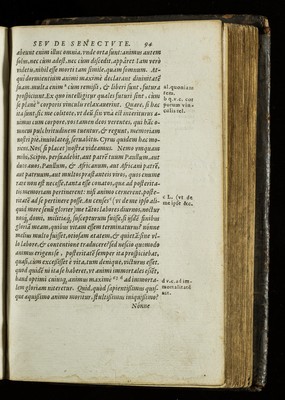 SEV DE SENECTVTE. 94
abeunt enim illuc omnia, unde orta sunt: animus autem
solus, nec cum adest, nec cum discedit, apparet. Iam verò
videtis, nihil esse morti tam simile, quàm somnum. At-
qui dormientium animi maximè declarant diuinitatē
suam. multa enim cum remissi, & liberi sunt, futura
prospiciunt. Ex quo intelligitur quales futuri sint, cùm
se planè corporis vinculis relaxauerint. Quare, si hæc
ita sunt, sic me colitote, vt deū. sin vna est interiturus a-
nimus cum corpore, vos tamen deos verentes, qui hāc o-
mnem pulchritudinem tuentur, & regunt, memoriam
nostri piè, inuiolateq́; seruabitis. Cyrus quidem hæc mo-
riens. Nos, si placet, nostra videamus. Nemo vmquam
mihi, Scipio, persuadebit, aut patrē tuum Paullum, aut
duos auos, Paullum, & Africanum, aut Africani patrē,
aut patruum, aut multos præstanteis viros, quos enume
rare non est necesse, tanta esse conatos, quæ ad posterita-
tis memoriam pertinerent: nisi animo cernerent, poste-
ritatē ad se pertinere posse. An censes (vt de me ipse ali-
quid more senū glorier) me tātos labores diurnos, noctur
nosq́; domi, militiæq́; suscepturum fuisse, si ijsdē finibus
gloriā meam, quibus vitam essem terminaturus? nónne
melius multo fuisset, otiosam ætatem, & quietā, sine vl-
lo labore, & contentione traducere? sed nescio quomodo
animus erigens se, posteritatē semper ita prospiciebat,
quasi, cùm excessisset è vita, tum denique victurus esset.
quod quidē ni ita se haberet, vt animi immortales essēt,
haud optimi cuiusq́; animus maximè ad immorta-
lem gloriam niteretur. Quid, quòd sapientissimus quis-
que æquissimo animo moritur, stultissimus iniquissimo?
Nónne